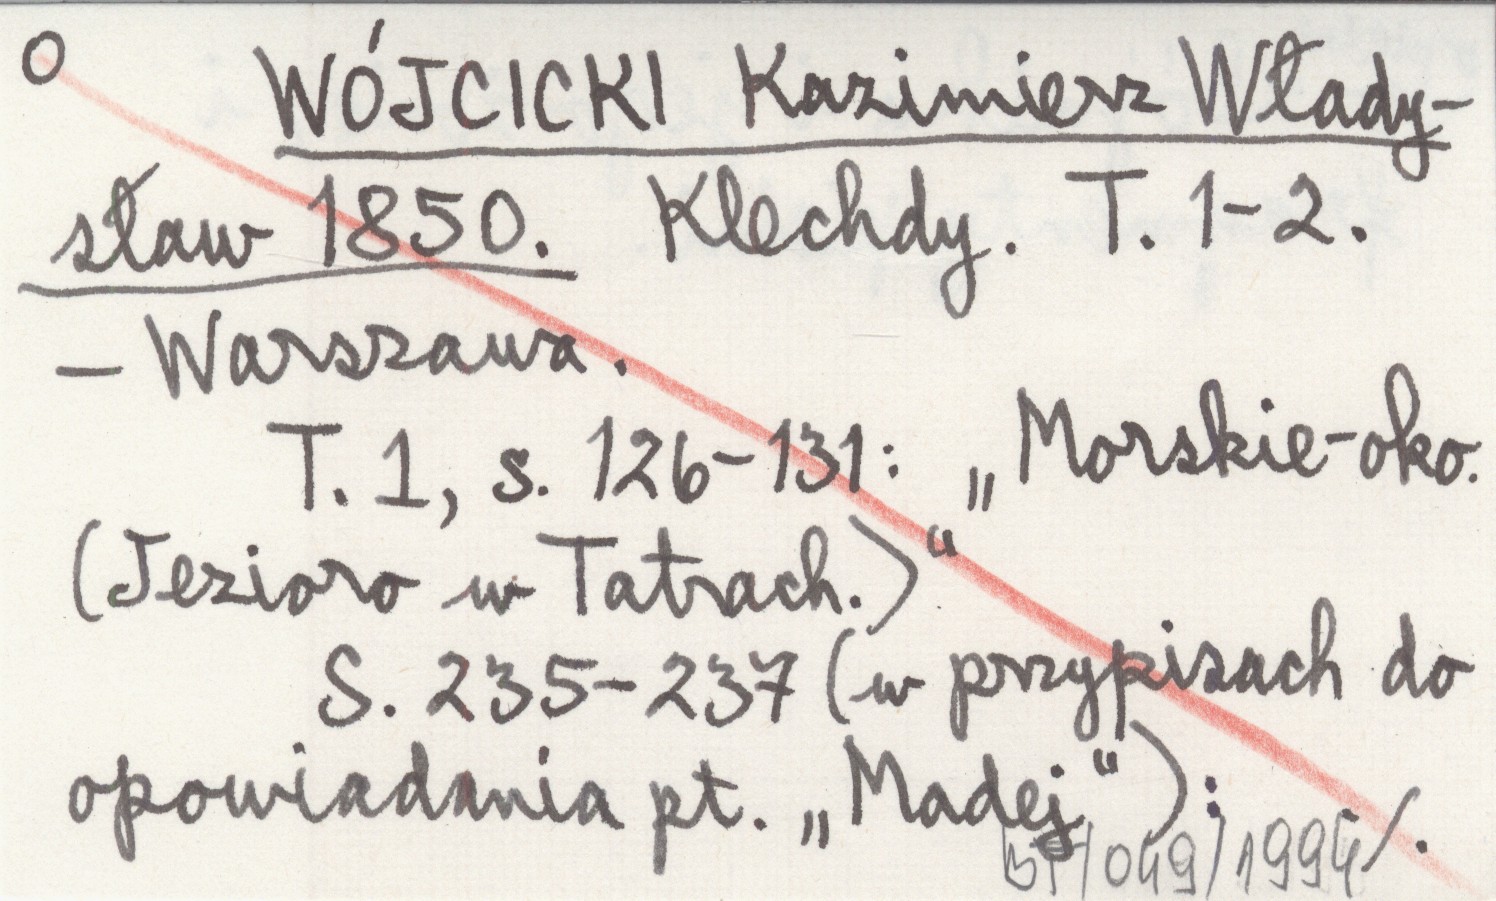 O WÓJCICKI Kazimierz Włady-
sław 1850. Klechdy. T. 1-2.
– Warszawa.
T. 1, s. 126-131: „Morskie-oko.
(Jezioro w Tatrach.)“
S. 235-237 (w przypisach do
opowiadania pt. „Madej“):
/049/ ./.